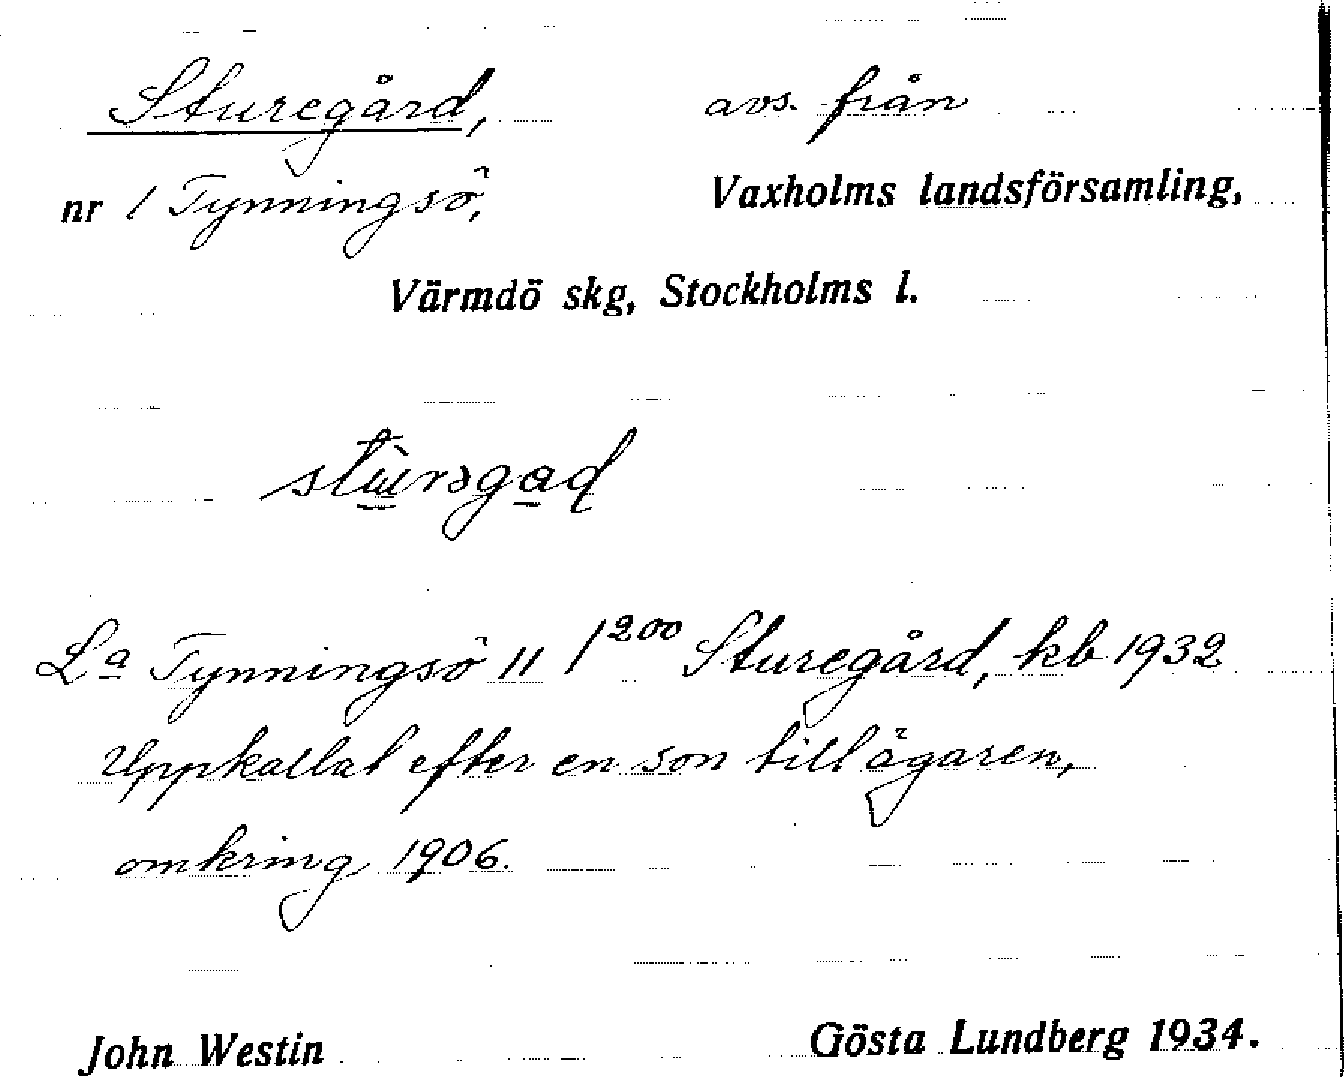 Sturegård, avs. från
nr 1 Tynningsö, Vaxholms landsförsamling,
Värmdö skg, Stockholms l.
La Tynningsö 11 1200 Sturegård, kb 1932
Uppkallat efter en son till ägaren,
omkring 1906.
John Westin Gösta Lundberg 1934.